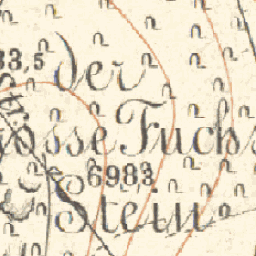 33,5
der
osse Fuchs
6983
Stein